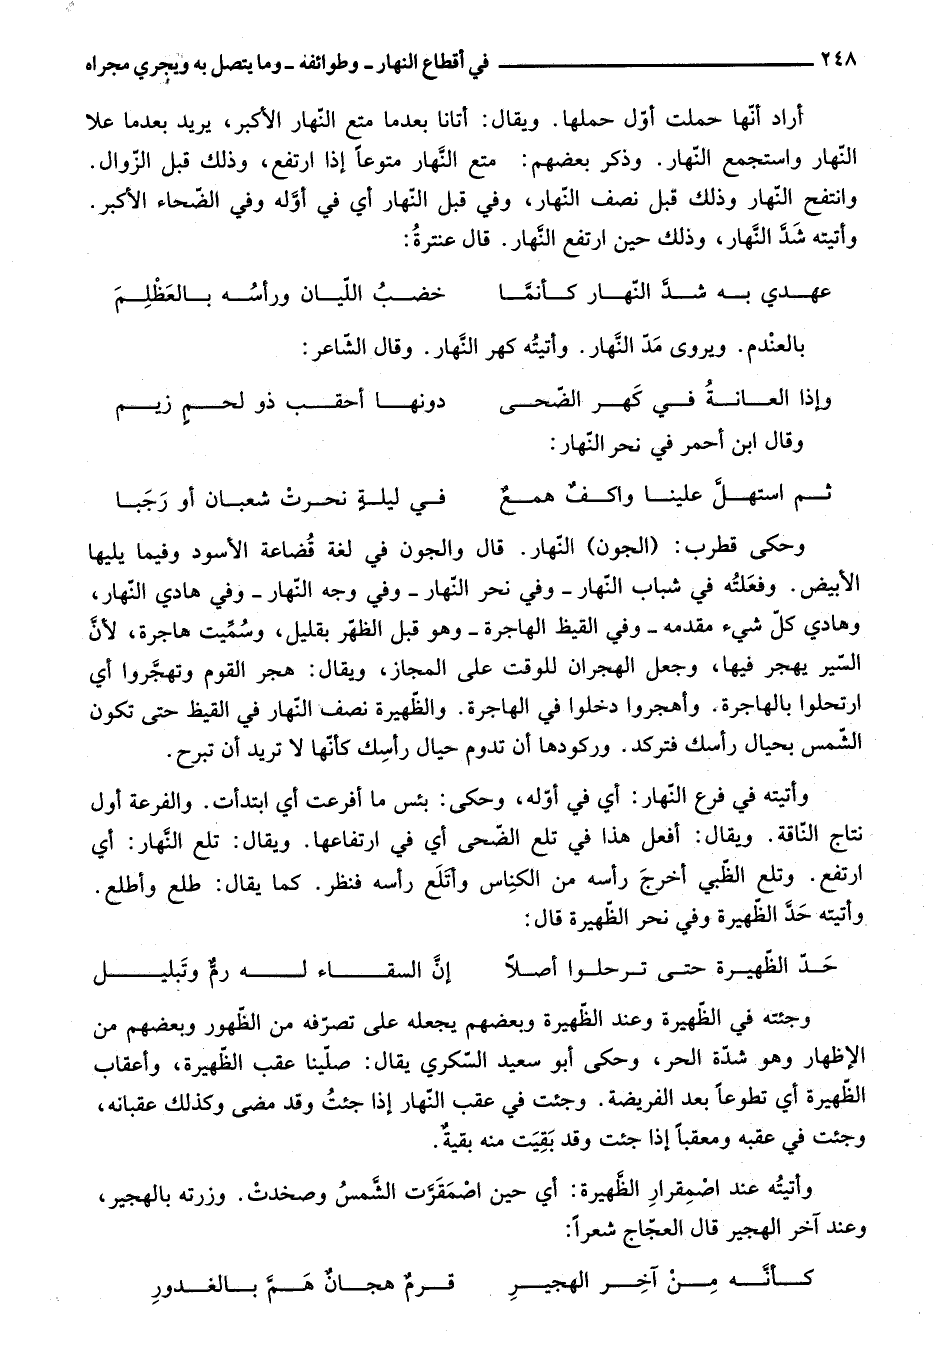 ٢٤٨ ــــــــــ في أقطاع النهار ـ وطوائفه ـ وما يتصل به ويجري مجراه
أراد أنّها حملت أوّل حملها. ويقال: أتانا بعدما متع النّهار الأكبر، يريد بعدما علا
النّهار واستجمع النّهار. وذكر بعضهم: متع النَّهار متوعاً إذا ارتفع، وذلك قبل الزّوال.
وانتفح النّهار وذلك قبل نصف النّهار، وفي قبل النّهار أي في أوّله وفي الضّحاء الأكبر.
وأتيته شَدَّ النَّهار، وذلك حين ارتفع النَّهار. قال عنترةُ:
عهدي به شدَّ النّهار كأنمَّا خضبُ اللّيان ورأسُه بالعَظْلِمَ
بالعنْدم. ويروى مَدّ النَّهار. وأتيتُه كهر النَّهار. وقال الشّاعر:
وإذا العانةُ في كَهر الضّحى دونها أحقب ذو لحمٍ زيم
وقال ابن أحمر في نحر النّهار:
ثم استهلَّ علينا واكفٌ همعٌ في ليلةٍ نحرتْ شعبان أو رَجَبا
وحكى قطرب: (الجون) النّهار. قال والجون في لغة قُضاعة الأسود وفيما يليها
الأبيض. وفعَلتُه في شباب النّهار ـ وفي نحر النّهار ـ وفي وجه النّهار ـ وفي هادي النّهار،
وهادي كلّ شيء مقدمه ـ وفي القيظ الهاجرة ـ وهو قبل الظهّر بقليل، وسُمِّيت هاجرة، لأنَّ
السّير يهجر فيها، وجعل الهجران للوقت على المجاز، ويقال: هجر القوم وتهجَّروا أي
ارتحلوا بالهاجرة. وأهجروا دخلوا في الهاجرة. والظّهيرة نصف النّهار في القيظ حتى تكون
الشّمس بحيال رأسك فتركد. وركودها أن تدوم حيال رأسِك كأنّها لا تريد أن تبرح.
وأتيته في فرع النّهار: أي في أوّله، وحكى: بئس ما أفرعت أي ابتدأت. والفرعة أول
نتاج النّاقة. ويقال: أفعل هذا في تلع الضّحى أي في ارتفاعها. ويقال: تلع النَّهار: أي
ارتفع. وتلع الظّبي أخرجَ رأسه من الكِناس وأتَلَع رأسه فنظر. كما يقال: طلع وأطلع.
وأتيته حَدَّ الظّهيرة وفي نحر الظّهيرة قال:
حَدّ الظّهيرة حتى ترحلوا أصلاً إنَّ السقاء له رمٌّ وتَبليل
وجئته في الظّهيرة وعند الظّهيرة وبعضهم يجعله على تصرّفه من الظّهور وبعضهم من
الإظهار وهو شدّة الحر، وحكى أبو سعيد السّكري يقال: صلّينا عقب الظّهيرة، وأعقاب
الظّهيرة أي تطوعاً بعد الفريضة. وجئت في عقب النّهار إذا جئتُ وقد مضى وكذلك عقبانه،
وجئت في عقبه ومعقباً إذا جئت وقد بَقِيَت منه بقيةٌ.
وأتيتُه عند اضْمِقرارِ الظَّهيرة: أي حين اضْمَقَرَّت الشَّمسُ وصخدتْ. وزرته بالهجير،
وعند آخر الهجير قال العجّاج شعراً:
كأنَّه مِنْ آخِر الهجيرِ قرمٌ هجانٌ هَمَّ بالغدورِ